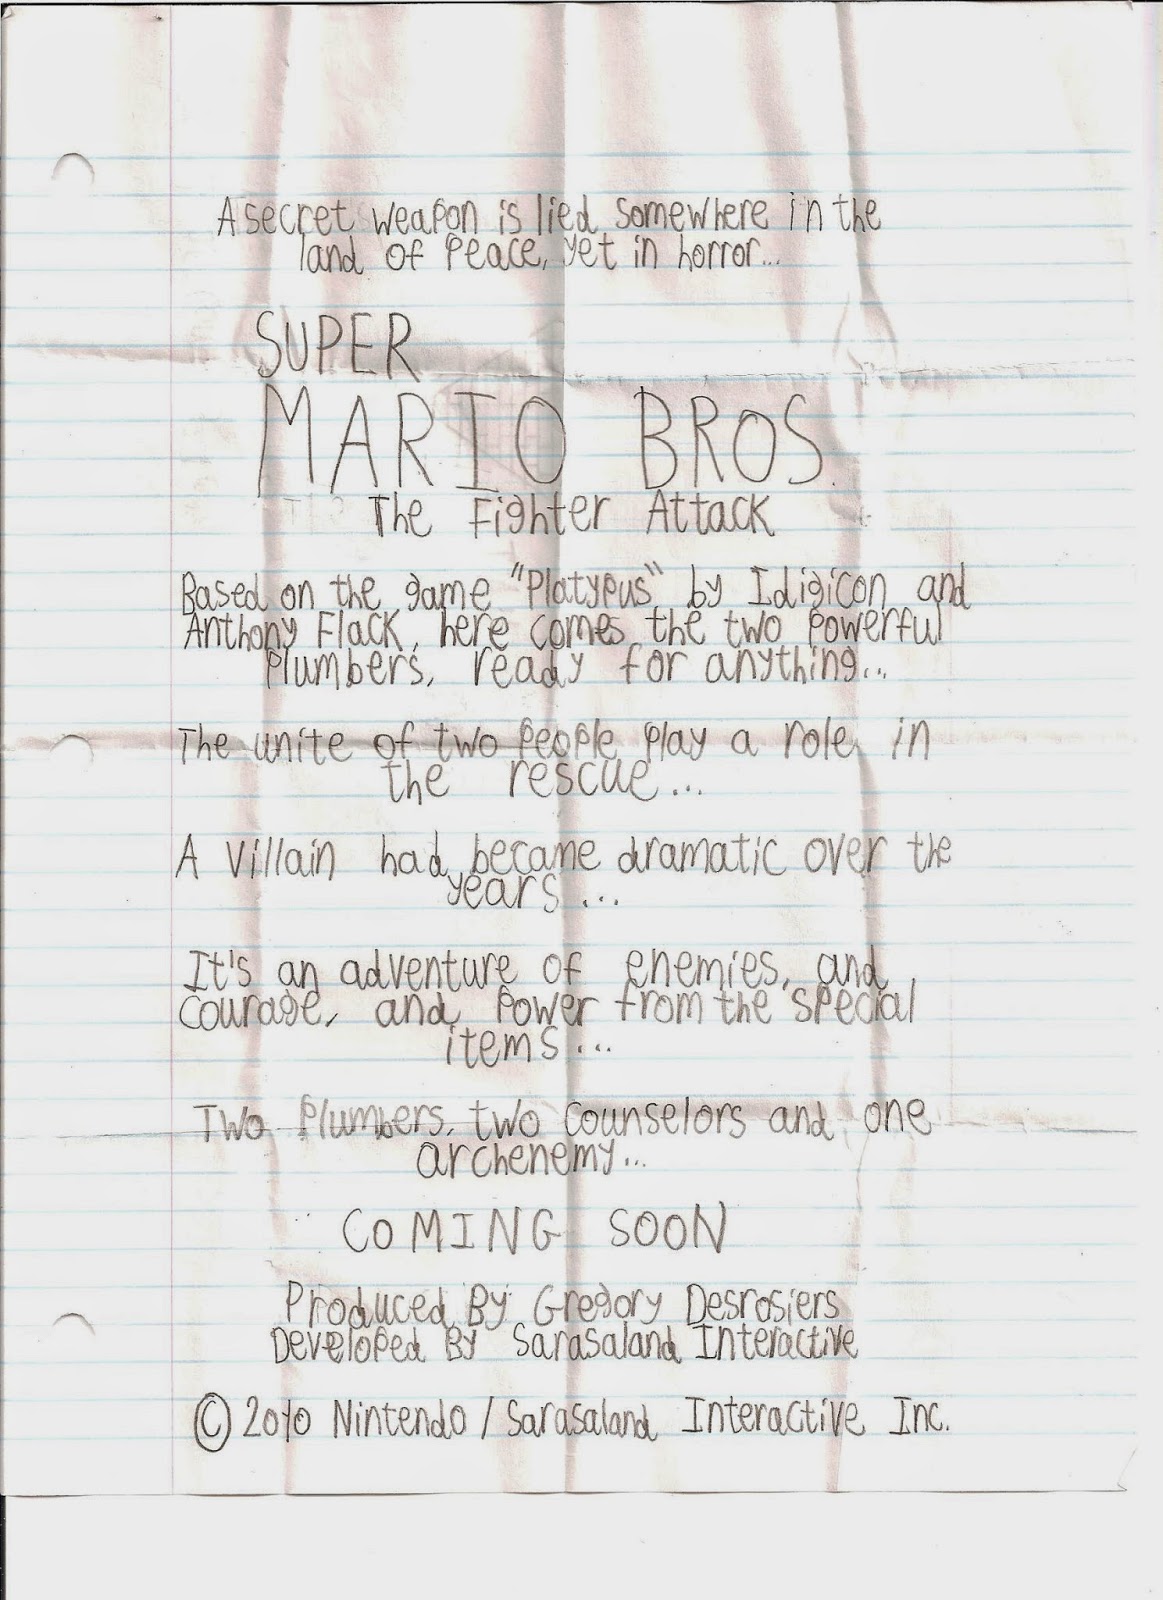 A secret weapon is lied somewhere in the
land of peace, yet in horror...
SUPER
MARIO BROS.
The Fighter Attack
Based on the game "Platypus" by Idigicon and
Anthony Flack, here comes the two powerful
plumbers, ready for anything...
The unite of two people play a role in
the rescue...
A villain had became dramatic over the
years...
It's an adventure of enemies, and
courage, and power from the special
items...
Two plumbers, two counselors and one
archenemy...
COMING SOON
Produced By Gregory Desrosiers
Developed By Sarasaland Interactive
© 2010 Nintendo / Sarasaland Interactive Inc.